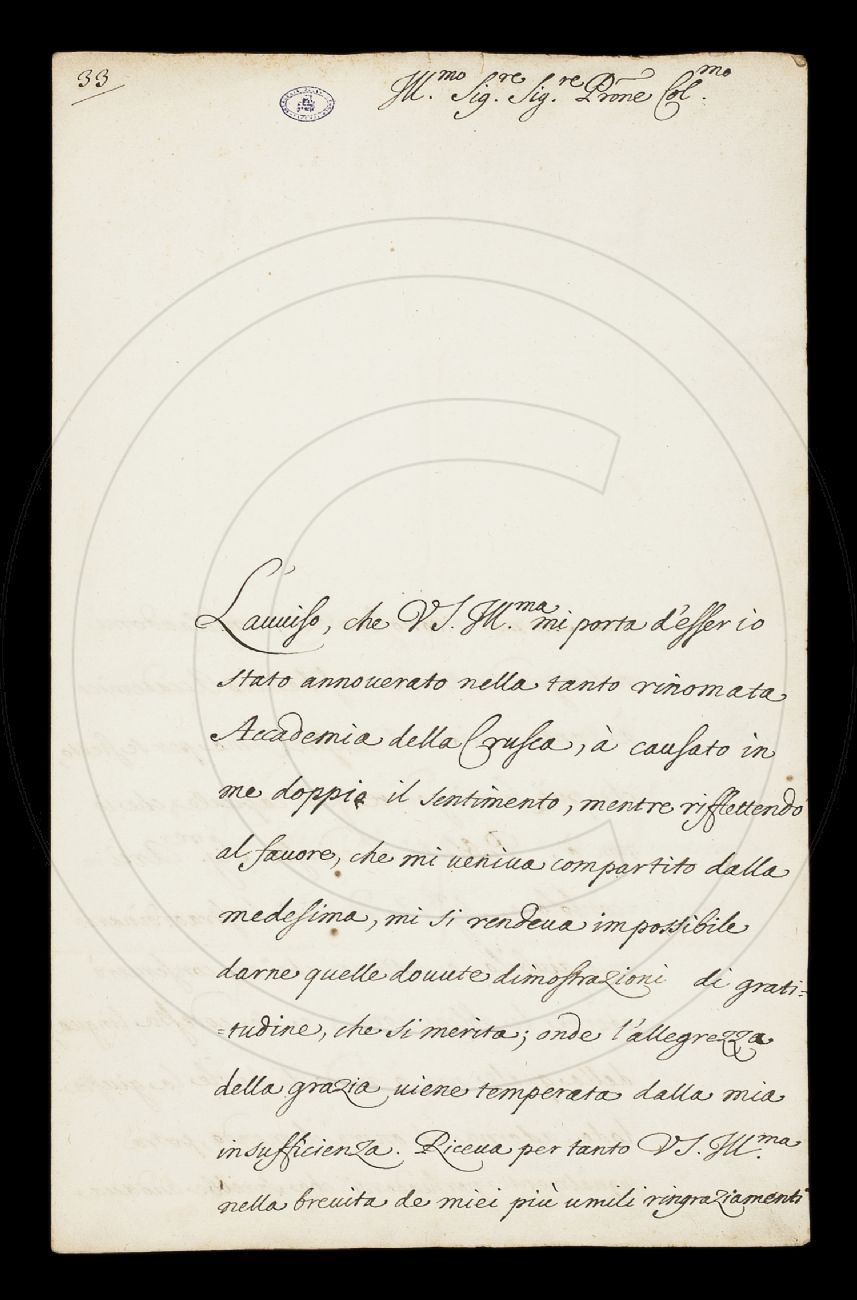 33
Ill.mo Sig.re Sig.re Prone Col.mo
L'auuiso, che VS. Ill.ma mi porta d'esser io
stato annouerato nella tanto rinomata
Accademia della Crusca, à causato in
me doppio il sentimento, mentre riflettendo
al fauore, che mi veniua compartito dalla
medesima, mi si rendeua impossibile
darne quelle douute dimostrazioni di grati=
=tudine, che si merita; onde l'allegrezza
della grazia uiene temperata dalla mia
insufficienza. Riceua per tanto VS. Ill.ma
nella breuita de miei più umili ringraziamenti